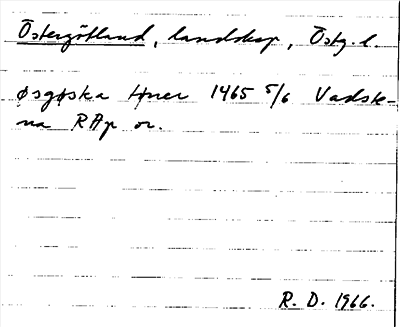 Östergötland, landskap, Östg. l.
øsgøska tÿner 1465 5/6 Vadste-
na RAp or.
R. D. 1966.